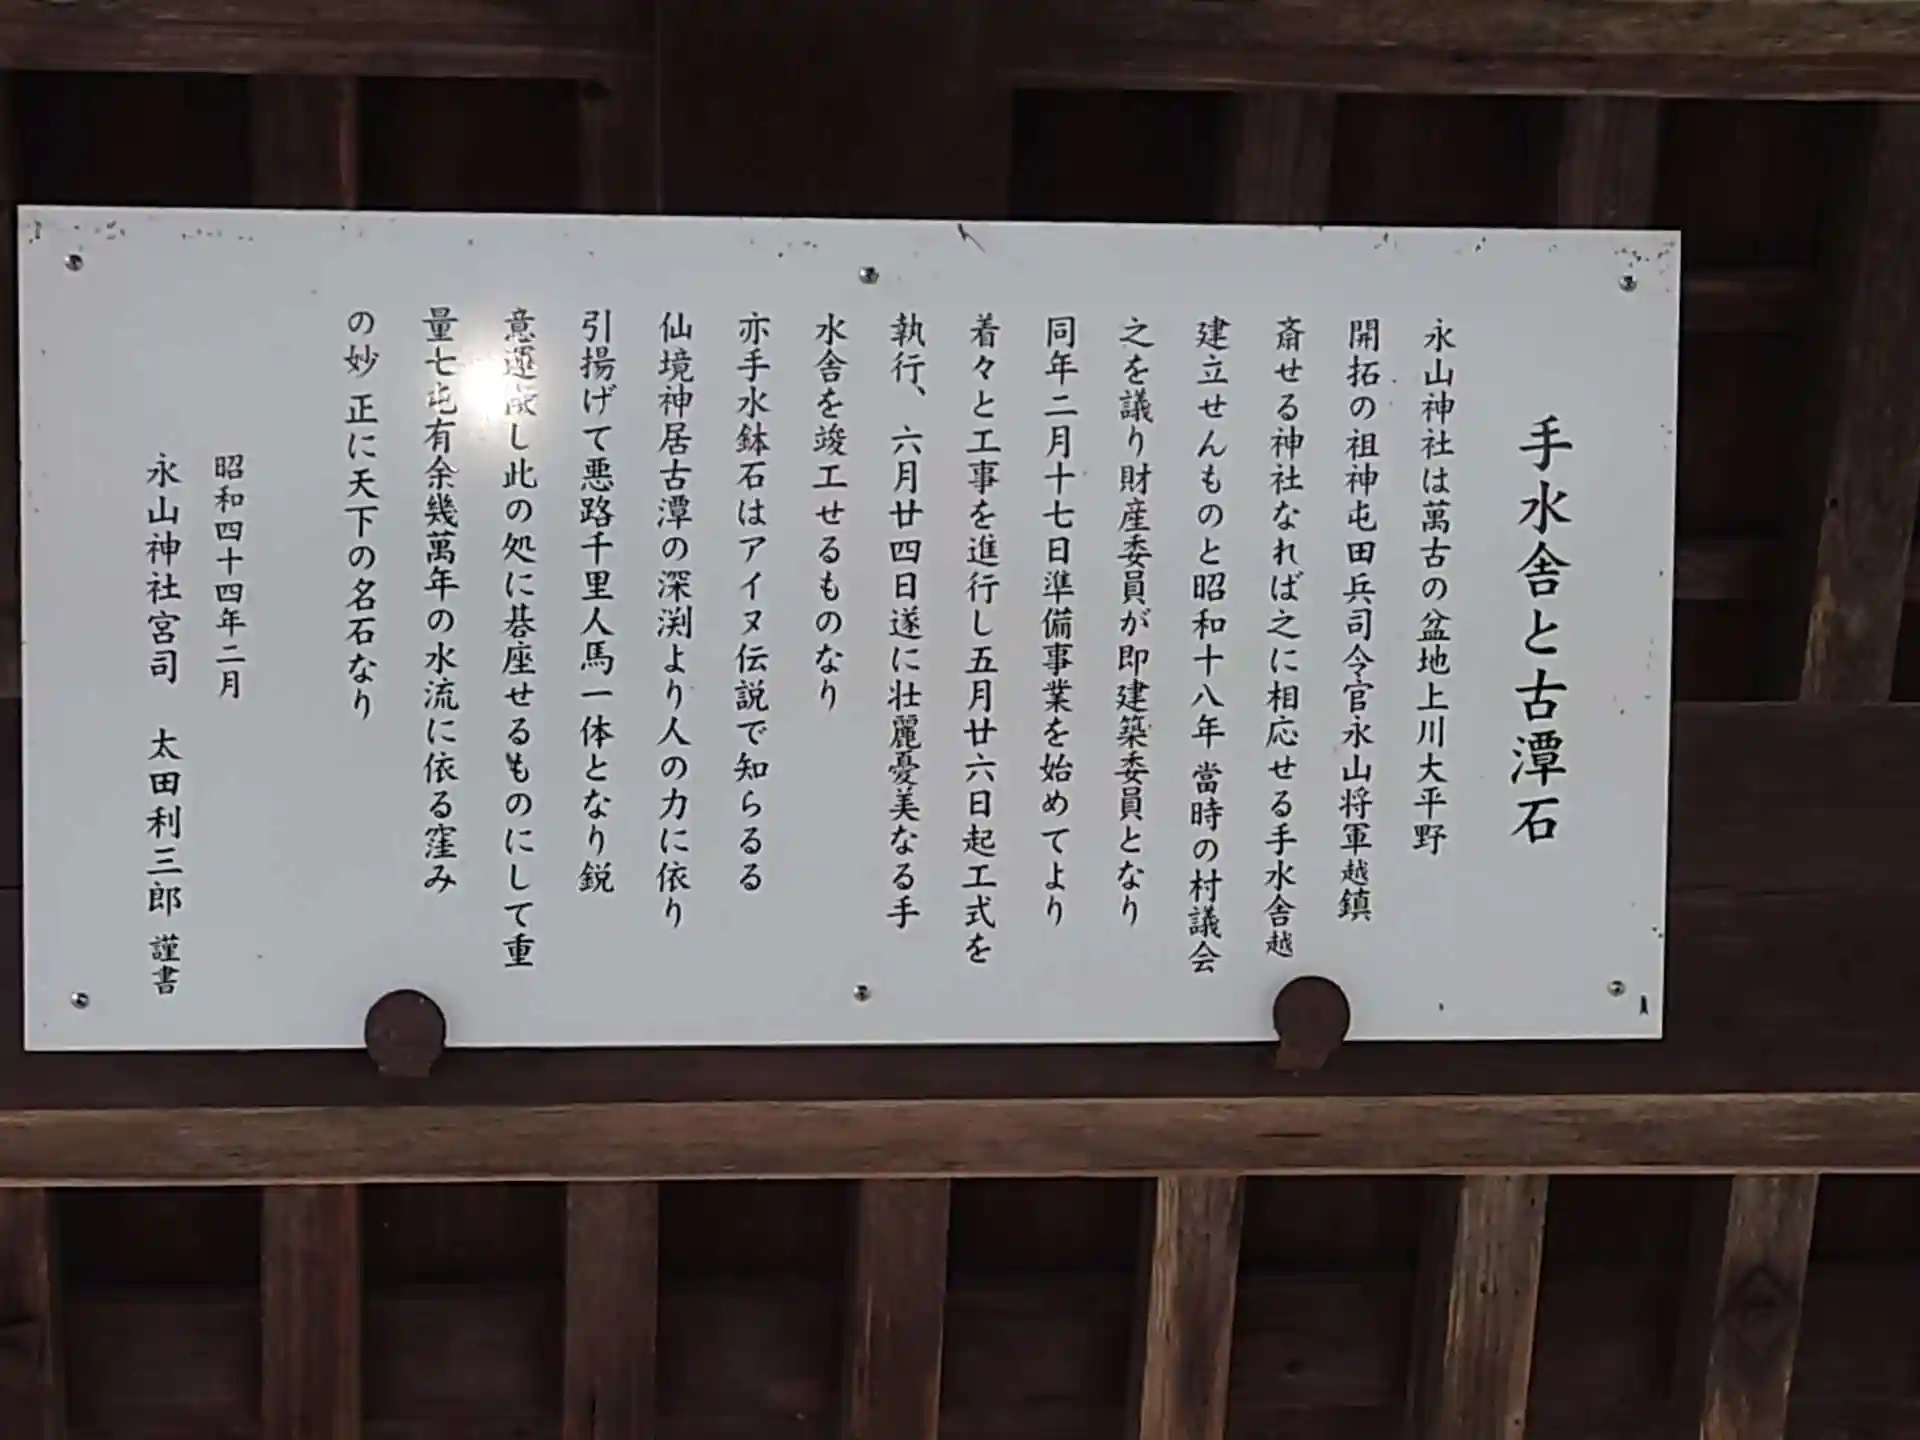 手水舎と古潭石
永山神社は萬古の盆地上川大平野
開拓の祖神屯田兵司令官永山将軍越鎮
斎せる神社なれば之に相応せる手水舎越
建立せんものと昭和十八年 當時の村議会
之を議り財産委員が即建築委員となり
同年二月十七日準備事業を始めてより
着々と工事を進行し五月廿六日起工式を
執行、六月廿四日遂に壮麗憂美なる手
水舎を竣工せるものなり
亦手水鉢石はアイヌ伝説で知らるる
仙境神居古潭の深渕より人の力に依り
引揚げて悪路千里人馬一体となり鋭
意運 し此の処に碁座せるものにして重
量七屯有余幾萬年の水流に依る窪み
の妙 正に天下の名石なり
昭和四十四年二月
永山神社宮司 太田利三郎 謹書